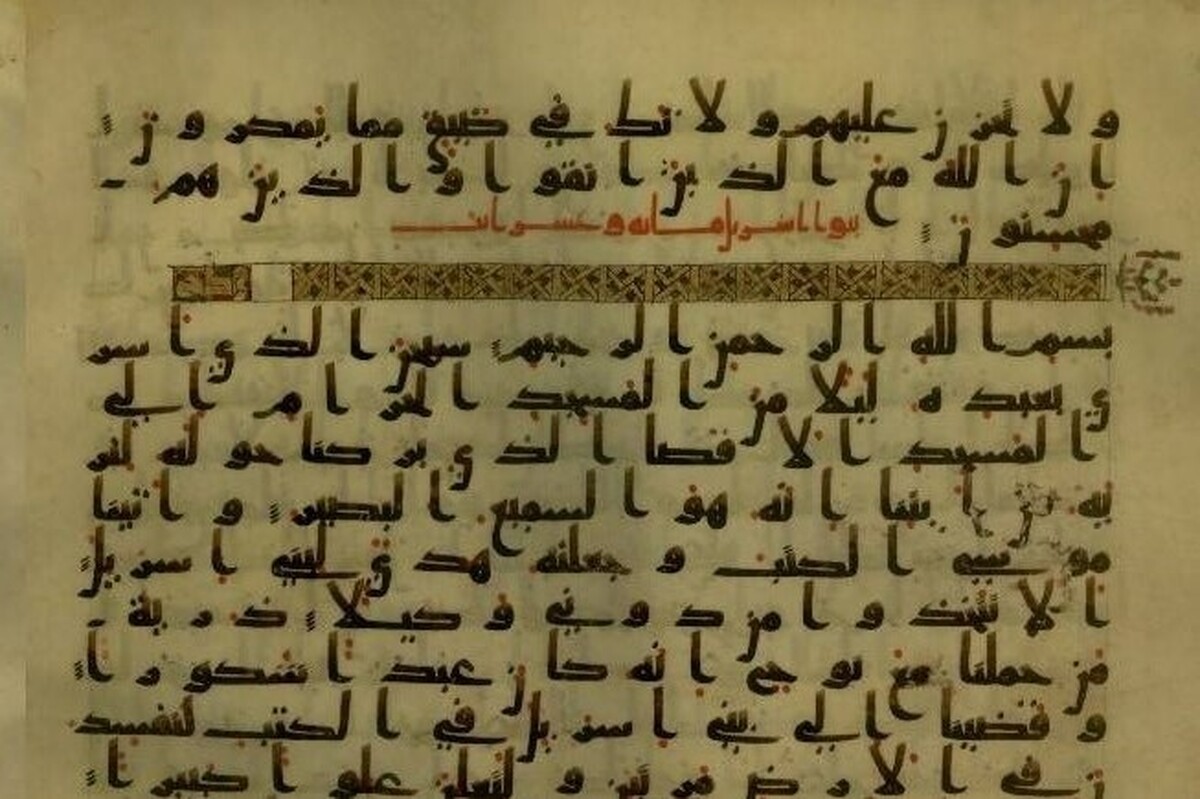 ولا تحزن عليهم ولا تك في ضيق مما يمكرون
ان الله مع الذين اتقوا والذين هم
محسنون بنوا اسريل مايه وعشر ايت
بسم الله الرحمن الرحيم سبحن الذي اسر
ى بعبده ليلا من المسجد الحرام الى
المسجد الاقصا الذي بركنا حوله لنر
يه من ايتنا انه هو السميع البصير واتينا
موسى الكتب وجعلنه هدى لبني اسريل
الا تتخذوا من دوني وكيلا ذرية
من حملنا مع نوح انه كان عبدا شكورا
وقضينا الى بني اسريل في الكتب لتفسد
ن في الارض مرتين ولتعلن علوا كبيرا